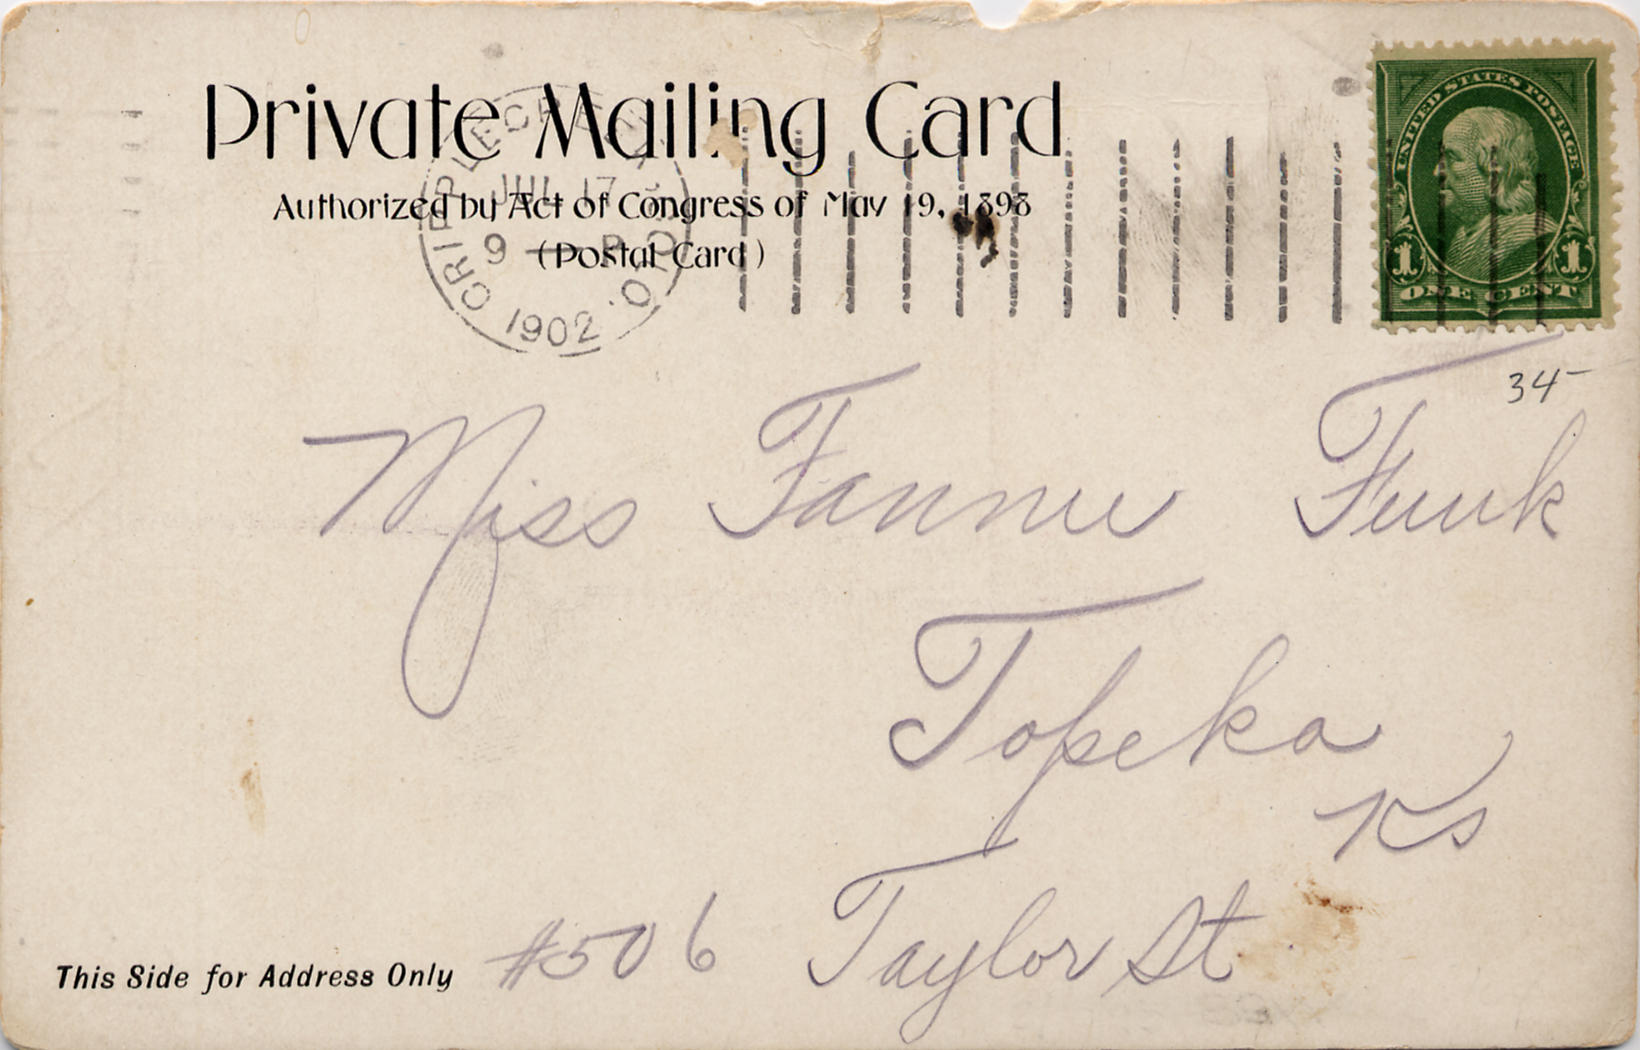 Private Mailing Card
Authorized by Act of Congress of May 19, 1898
(Postal Card)
CRIPPLE CREEK COLO.
JUL 17
9 — P
1902
UNITED STATES POSTAGE
1 1
ONE CENT
34-
Miss Fannie Funk
Topeka
Ks
#506 Taylor St
This Side for Address Only